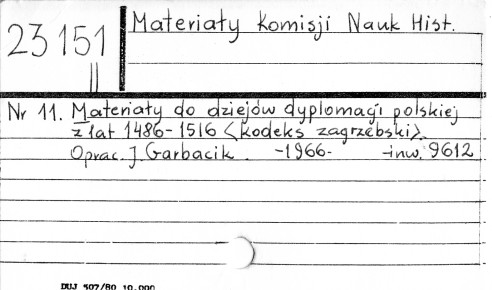 23151
II
Materiały Komisji Nauk Hist.
Nr 11. Materiały do dziejów dyplomacji polskiej
z lat 1486-1516 <Kodeks zagrzebski>.
Oprac. J. Garbacik. -1966- inw. 9612
DUJ 507/80 10.000